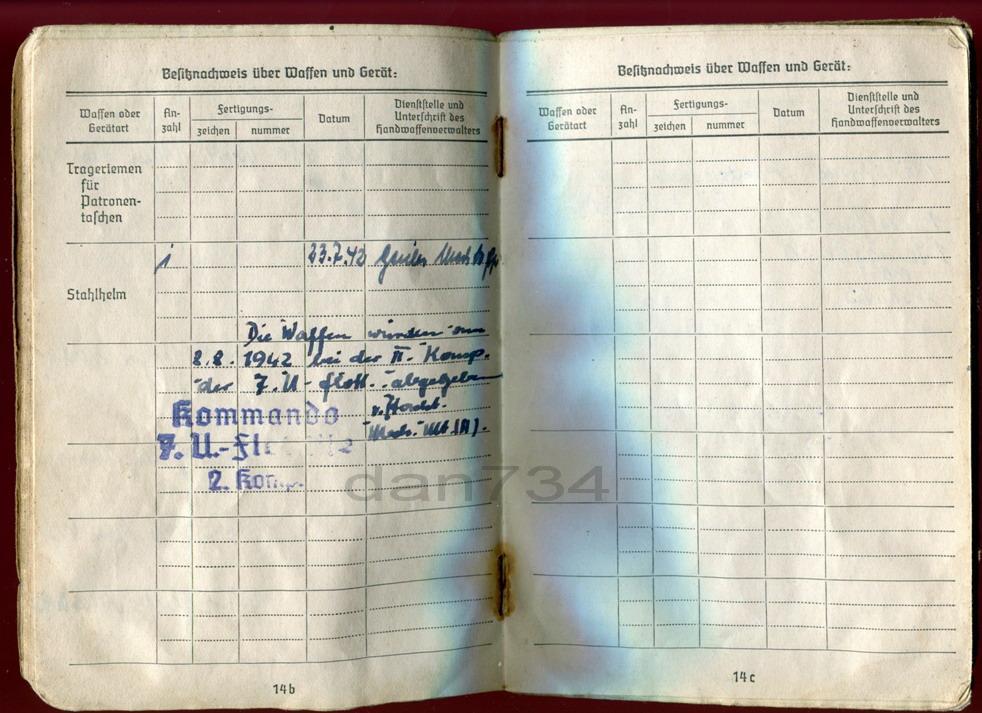 Besitznachweis über Waffen und Gerät:
Waffen oder Gerätart
An-zahl
Fertigungs-
zeichen
nummer
Datum
Dienststelle und Unterschrift des Handwaffenverwalters
Trageriemen
für
Patronen-
taschen
1 23.7.42
Stahlhelm
Die Waffen wurden am
8.8. 1942 bei der II. Komp.
der 7. U-Flott. abgegeben
Kommando
7. U.-Fl
2. Komp.
dan734
14b
Besitznachweis über Waffen und Gerät:
Waffen oder Gerätart
An-zahl
Fertigungs-
zeichen
nummer
Datum
Dienststelle und Unterschrift des Handwaffenverwalters
14c